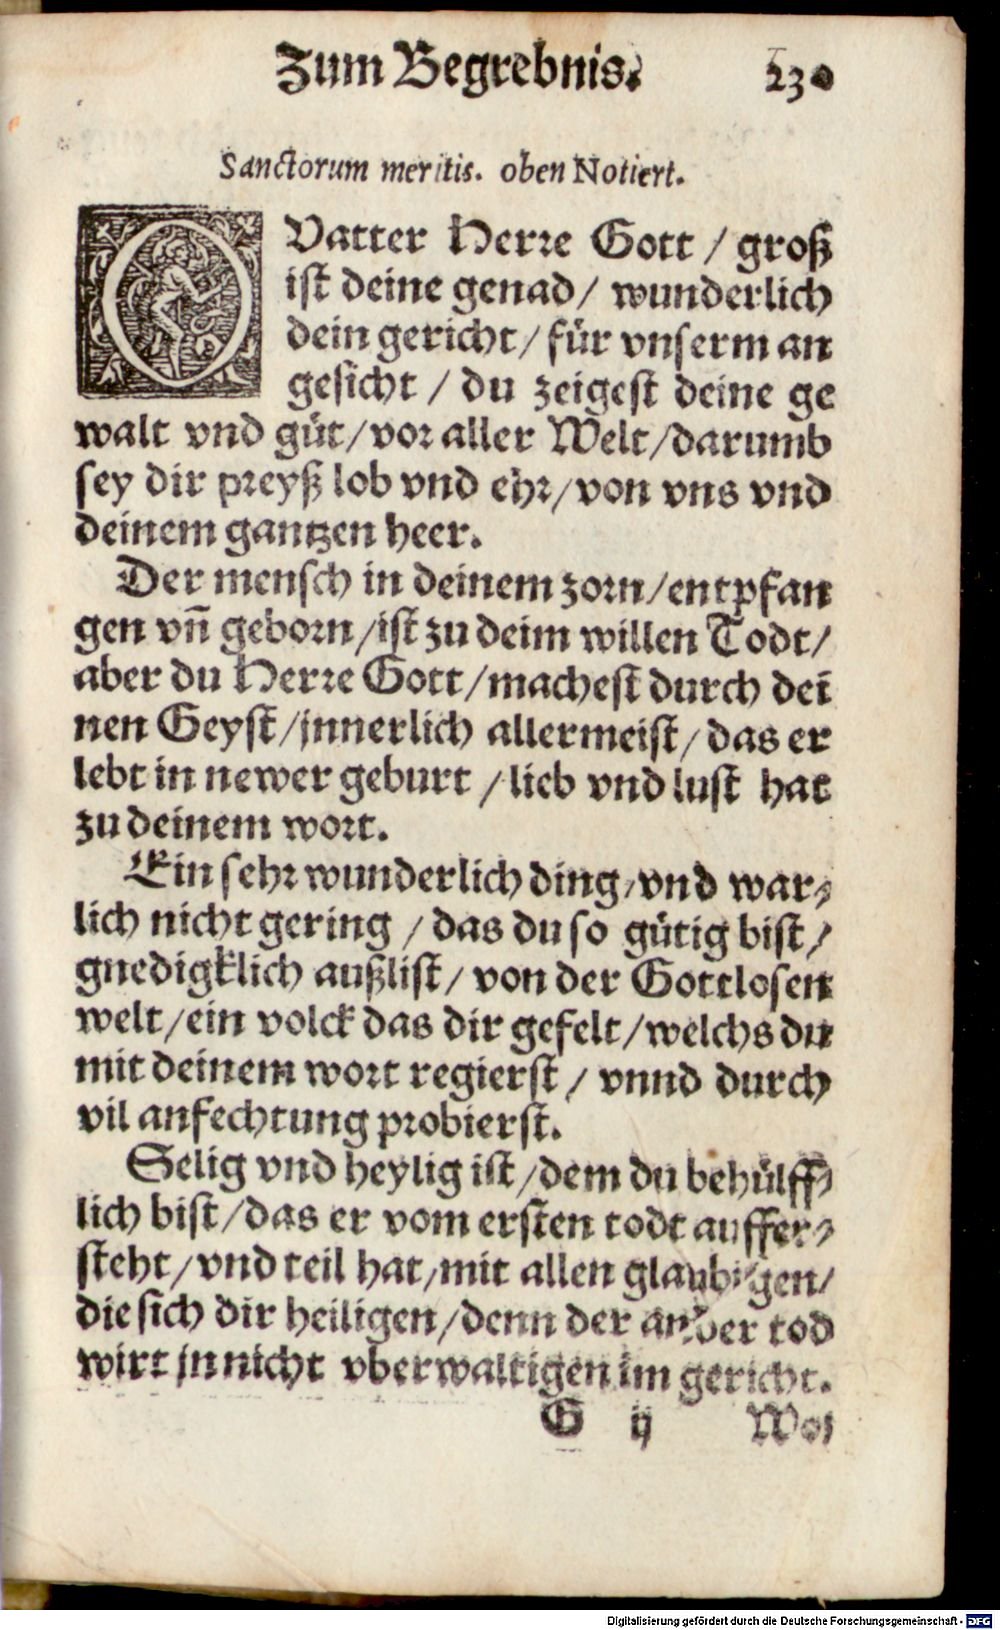 Zum Begrebnis. 230
Sanctorum meritis. oben Notiert.
O Vatter Herre Gott / groß
ist deine genad / wunderlich
dein gericht / für vnserm an
gesicht / du zeigest deine ge
walt vnd güt / vor aller Welt / darumb
sey dir preyß lob vnd ehr / von vns vnd
deinem gantzen heer.
Der mensch in deinem zorn / entpfan
gen vn̄ geborn / ist zu deim willen Todt /
aber du Herre Gott / machest durch dei
nen Geyst / jnnerlich allermeist / das er
lebt in newer geburt / lieb vnd lust hat
zu deinem wort.
Ein sehr wunderlich ding / vnd war⸗
lich nicht gering / das du so gütig bist /
gnedigklich außlist / von der Gottlosen
welt / ein volck das dir gefelt / welchs du
mit deinem wort regierst / vnnd durch
vil anfechtung probierst.
Selig vnd heylig ist / dem du behülff⸗
lich bist / das er vom ersten todt auffer⸗
steht / vnd teil hat / mit allen glaubigen /
die sich dir heiligen / denn der ander tod
wirt jn nicht vberwaltigen im gericht.
G ij Wol
Digitalisierung gefördert durch die Deutsche Forschungsgemeinschaft - DFG